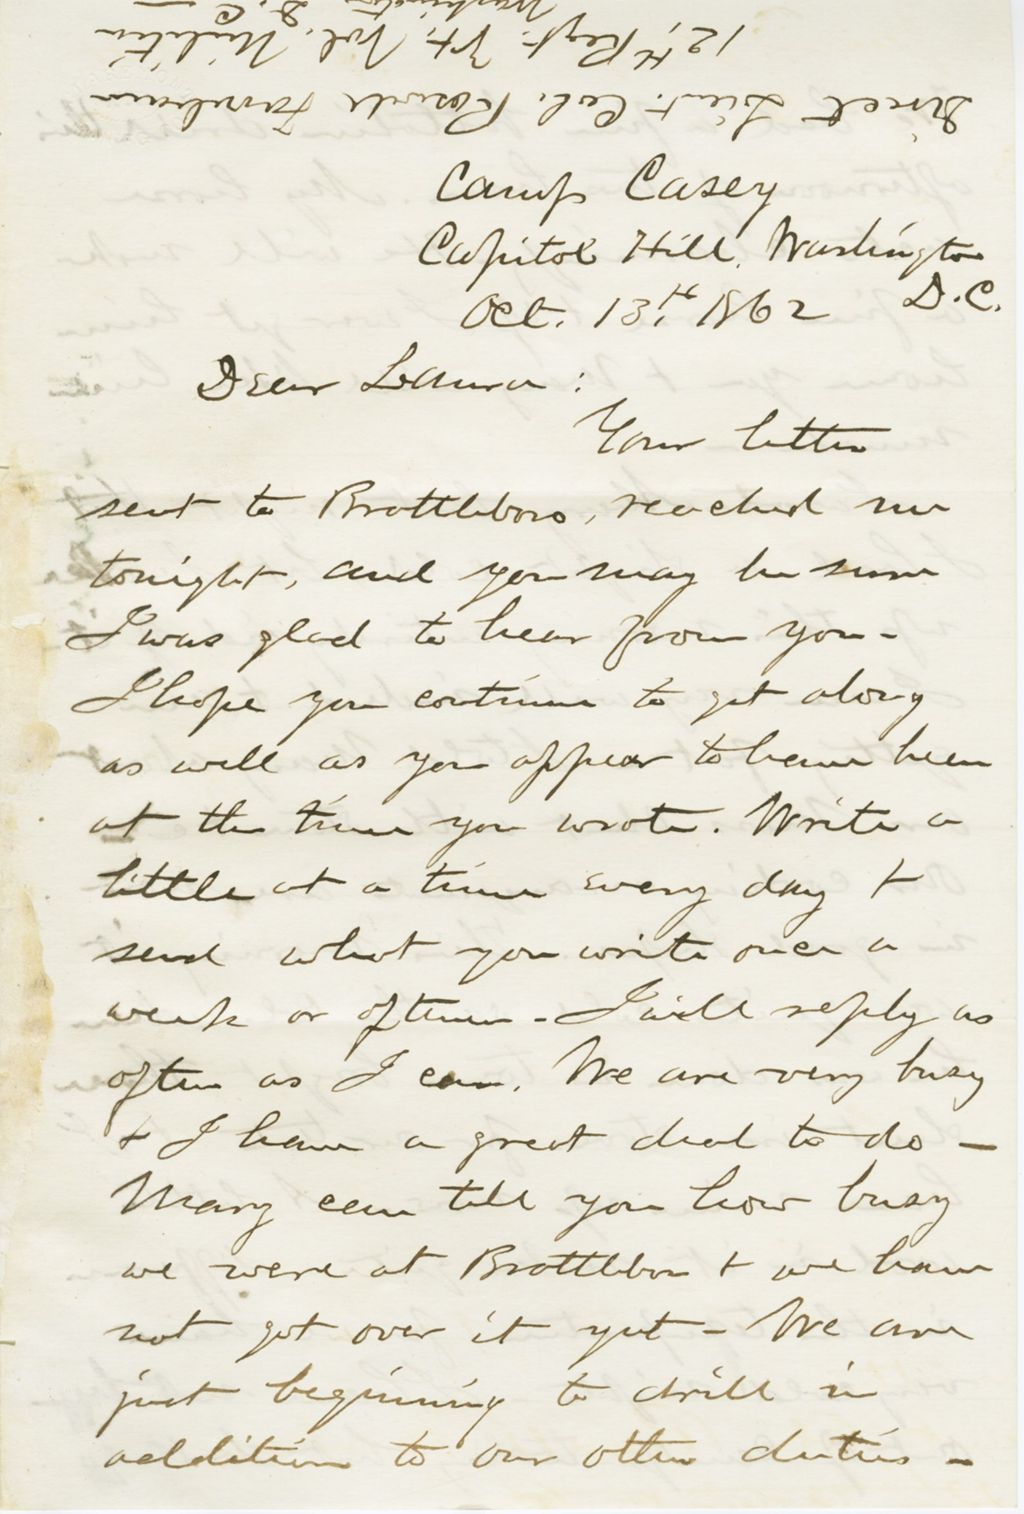 Direct Lieut. Col. Roswell Farnham
12th Regt. Vt. Vol. Militia
Washington D.C.
Camp Casey
Capitol Hill, Washington
D.C.
Oct. 13th, 1862
Dear Laura:
Your letter
sent to Brattleboro, reached me
tonight, and you may be sure
I was glad to hear from you -
I hope you continue to get along
as well as you appear to have been
at the time you wrote. Write a
little at a time every day &
send what you write once a
week or oftener - I will reply as
often as I can. We are very busy
& I have a great deal to do -
Mary can tell you how busy
we were at Brattleboro & we have
not got over it yet - We are
just beginning to drill in
addition to our other duties -